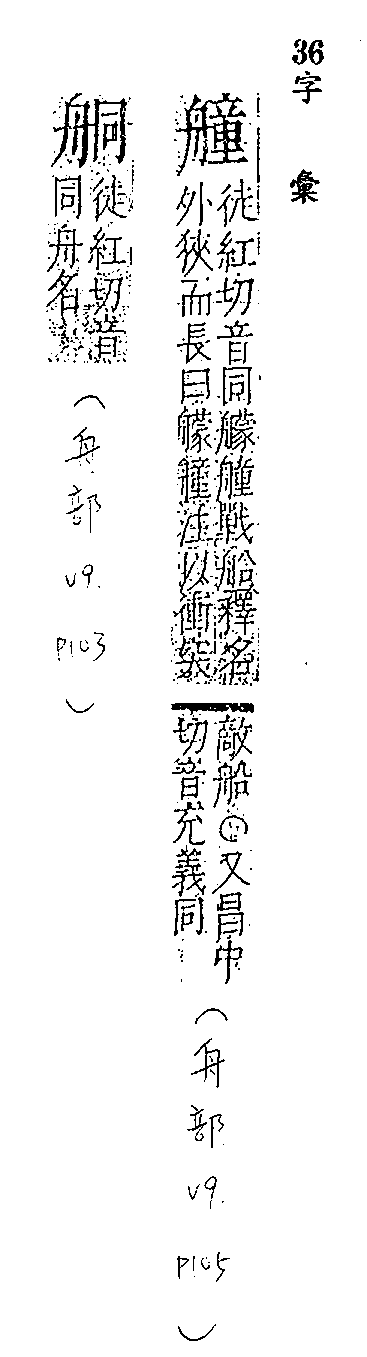 36字彙
艟
徒紅切音同艨艟戰船釋名
外狹而長曰艨艟注以衝突
敵船也又昌中
切音充義同
(舟部 v9. P105)
舸徒紅切音
同舟名
(舟部 v9. P103)